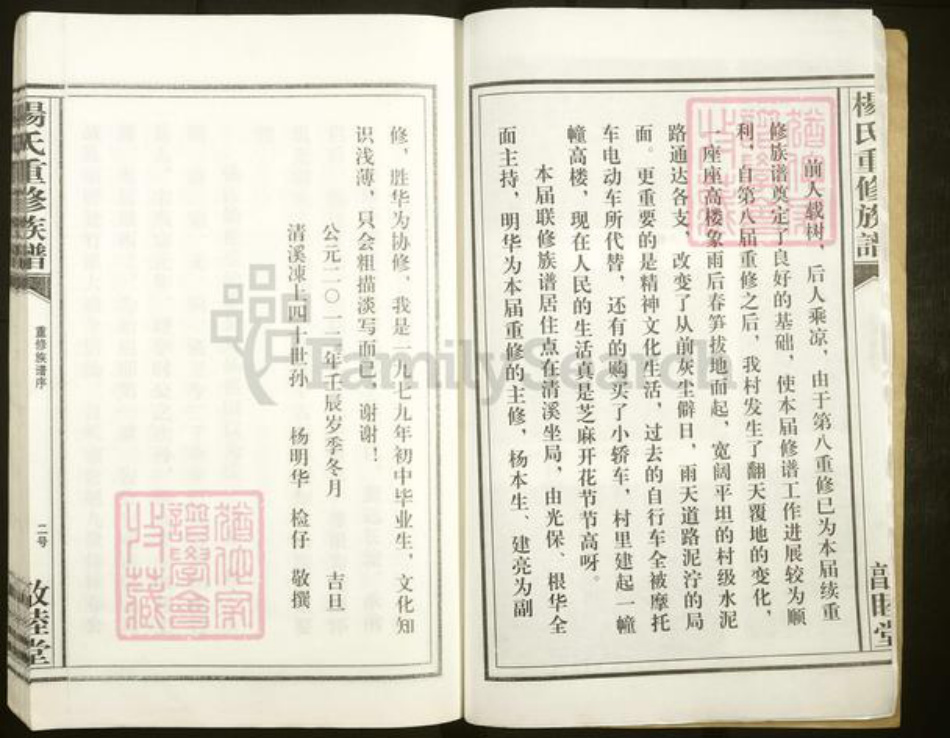 楊氏重修族譜
前人载树，后人乘凉，由于第八重修已为本届续重
修族谱奠定了良好的基础，使本届修谱工作进展较为顺
利，自第八届重修之后，我村发生了翻天覆地的变化，
一座座高楼象雨后春笋拔地而起，宽阔平坦的村级水泥
路通达各支，改变了从前灰尘僻日，雨天道路泥泞的局
面。更重要的是精神文化生活，过去的自行车全被摩托
车电动车所代替，还有的购买了小轿车，村里建起一幢
幢高楼，现在人民的生活真是芝麻开花节节高呀。
本届联修族谱居住点在清溪坐局，由光保、根华全
面主持，明华为本届重修的主修，杨本生、建亮为副
修，胜华为协修，我是一九七九年初中毕业生，文化知
识浅薄，只会粗描淡写而已，谢谢！
公元二〇一二年壬辰岁季冬月 吉旦
清溪凍上四十世孙 杨明华 检仔 敬撰
楊氏重修族譜
重修族谱序
二号
敦睦堂
譜學會
收藏
FamilySearch